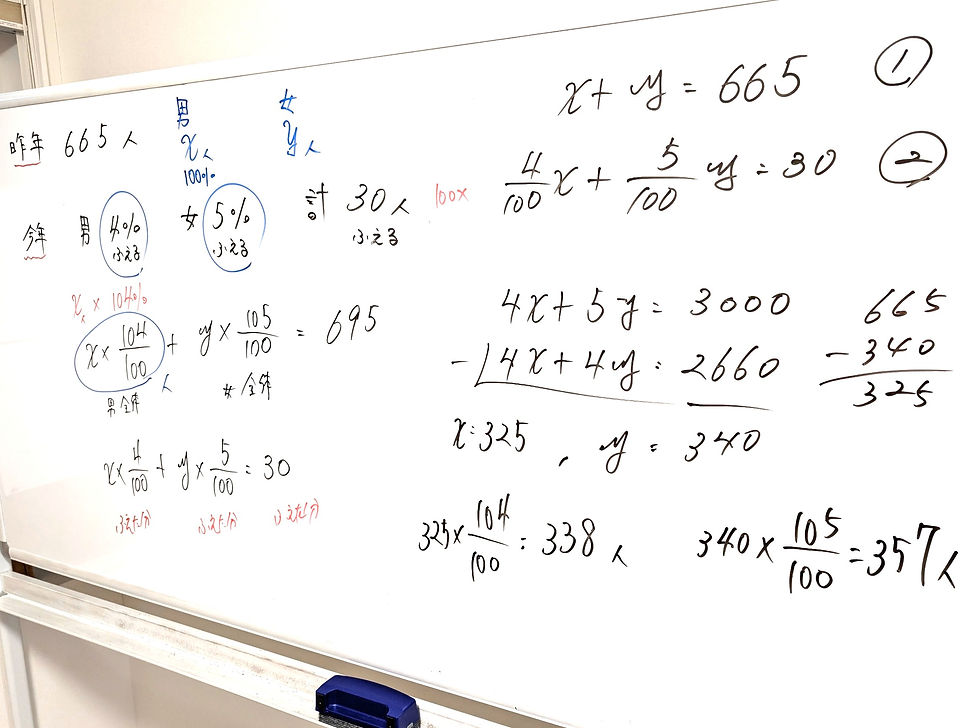 昨年 665人
男 女
x人 y人
100%
今年 男 4% 女 5% 計 30人
ふえる ふえる ふえる
x × 104%
x × 104/100 + y × 105/100 = 695
人
男全体 女全体
x × 4/100 + y × 5/100 = 30
ふえた分 ふえた分 ふえた分
x + y = 665 ①
100x 4/100 x + 5/100 y = 30 ②
4x + 5y = 3000
- 4x + 4y = 2660
x = 325 , y = 340
665
- 340
325
325 × 104/100 = 338人
340 × 105/100 = 357人